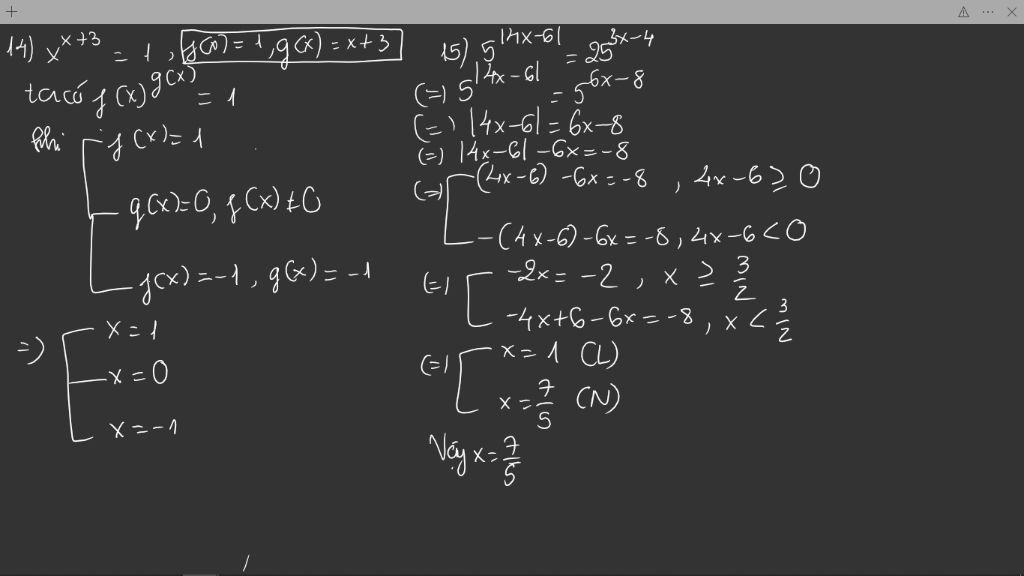 14) x^{x+3} = 1 , f(x) = 1, g(x) = x+3
ta có f(x)^{g(x)} = 1
khi f(x) = 1
g(x)=0, f(x) ≠ 0
f(x) = -1, g(x) = -1
=> x = 1
x = 0
x = -1
15) 5^{|4x-6|} = 25^{3x-4}
(=) 5^{|4x-6|} = 5^{6x-8}
(=) |4x-6| = 6x-8
(=) |4x-6| -6x = -8
(=) (4x-6) -6x = -8 , 4x-6 ≥ 0
-(4x-6)-6x = -8, 4x-6 < 0
(=) -2x = -2 , x ≥ 3/2
-4x+6-6x = -8, x < 3/2
(=) x = 1 (L)
x = 7/5 (N)
Vậy x = 7/5